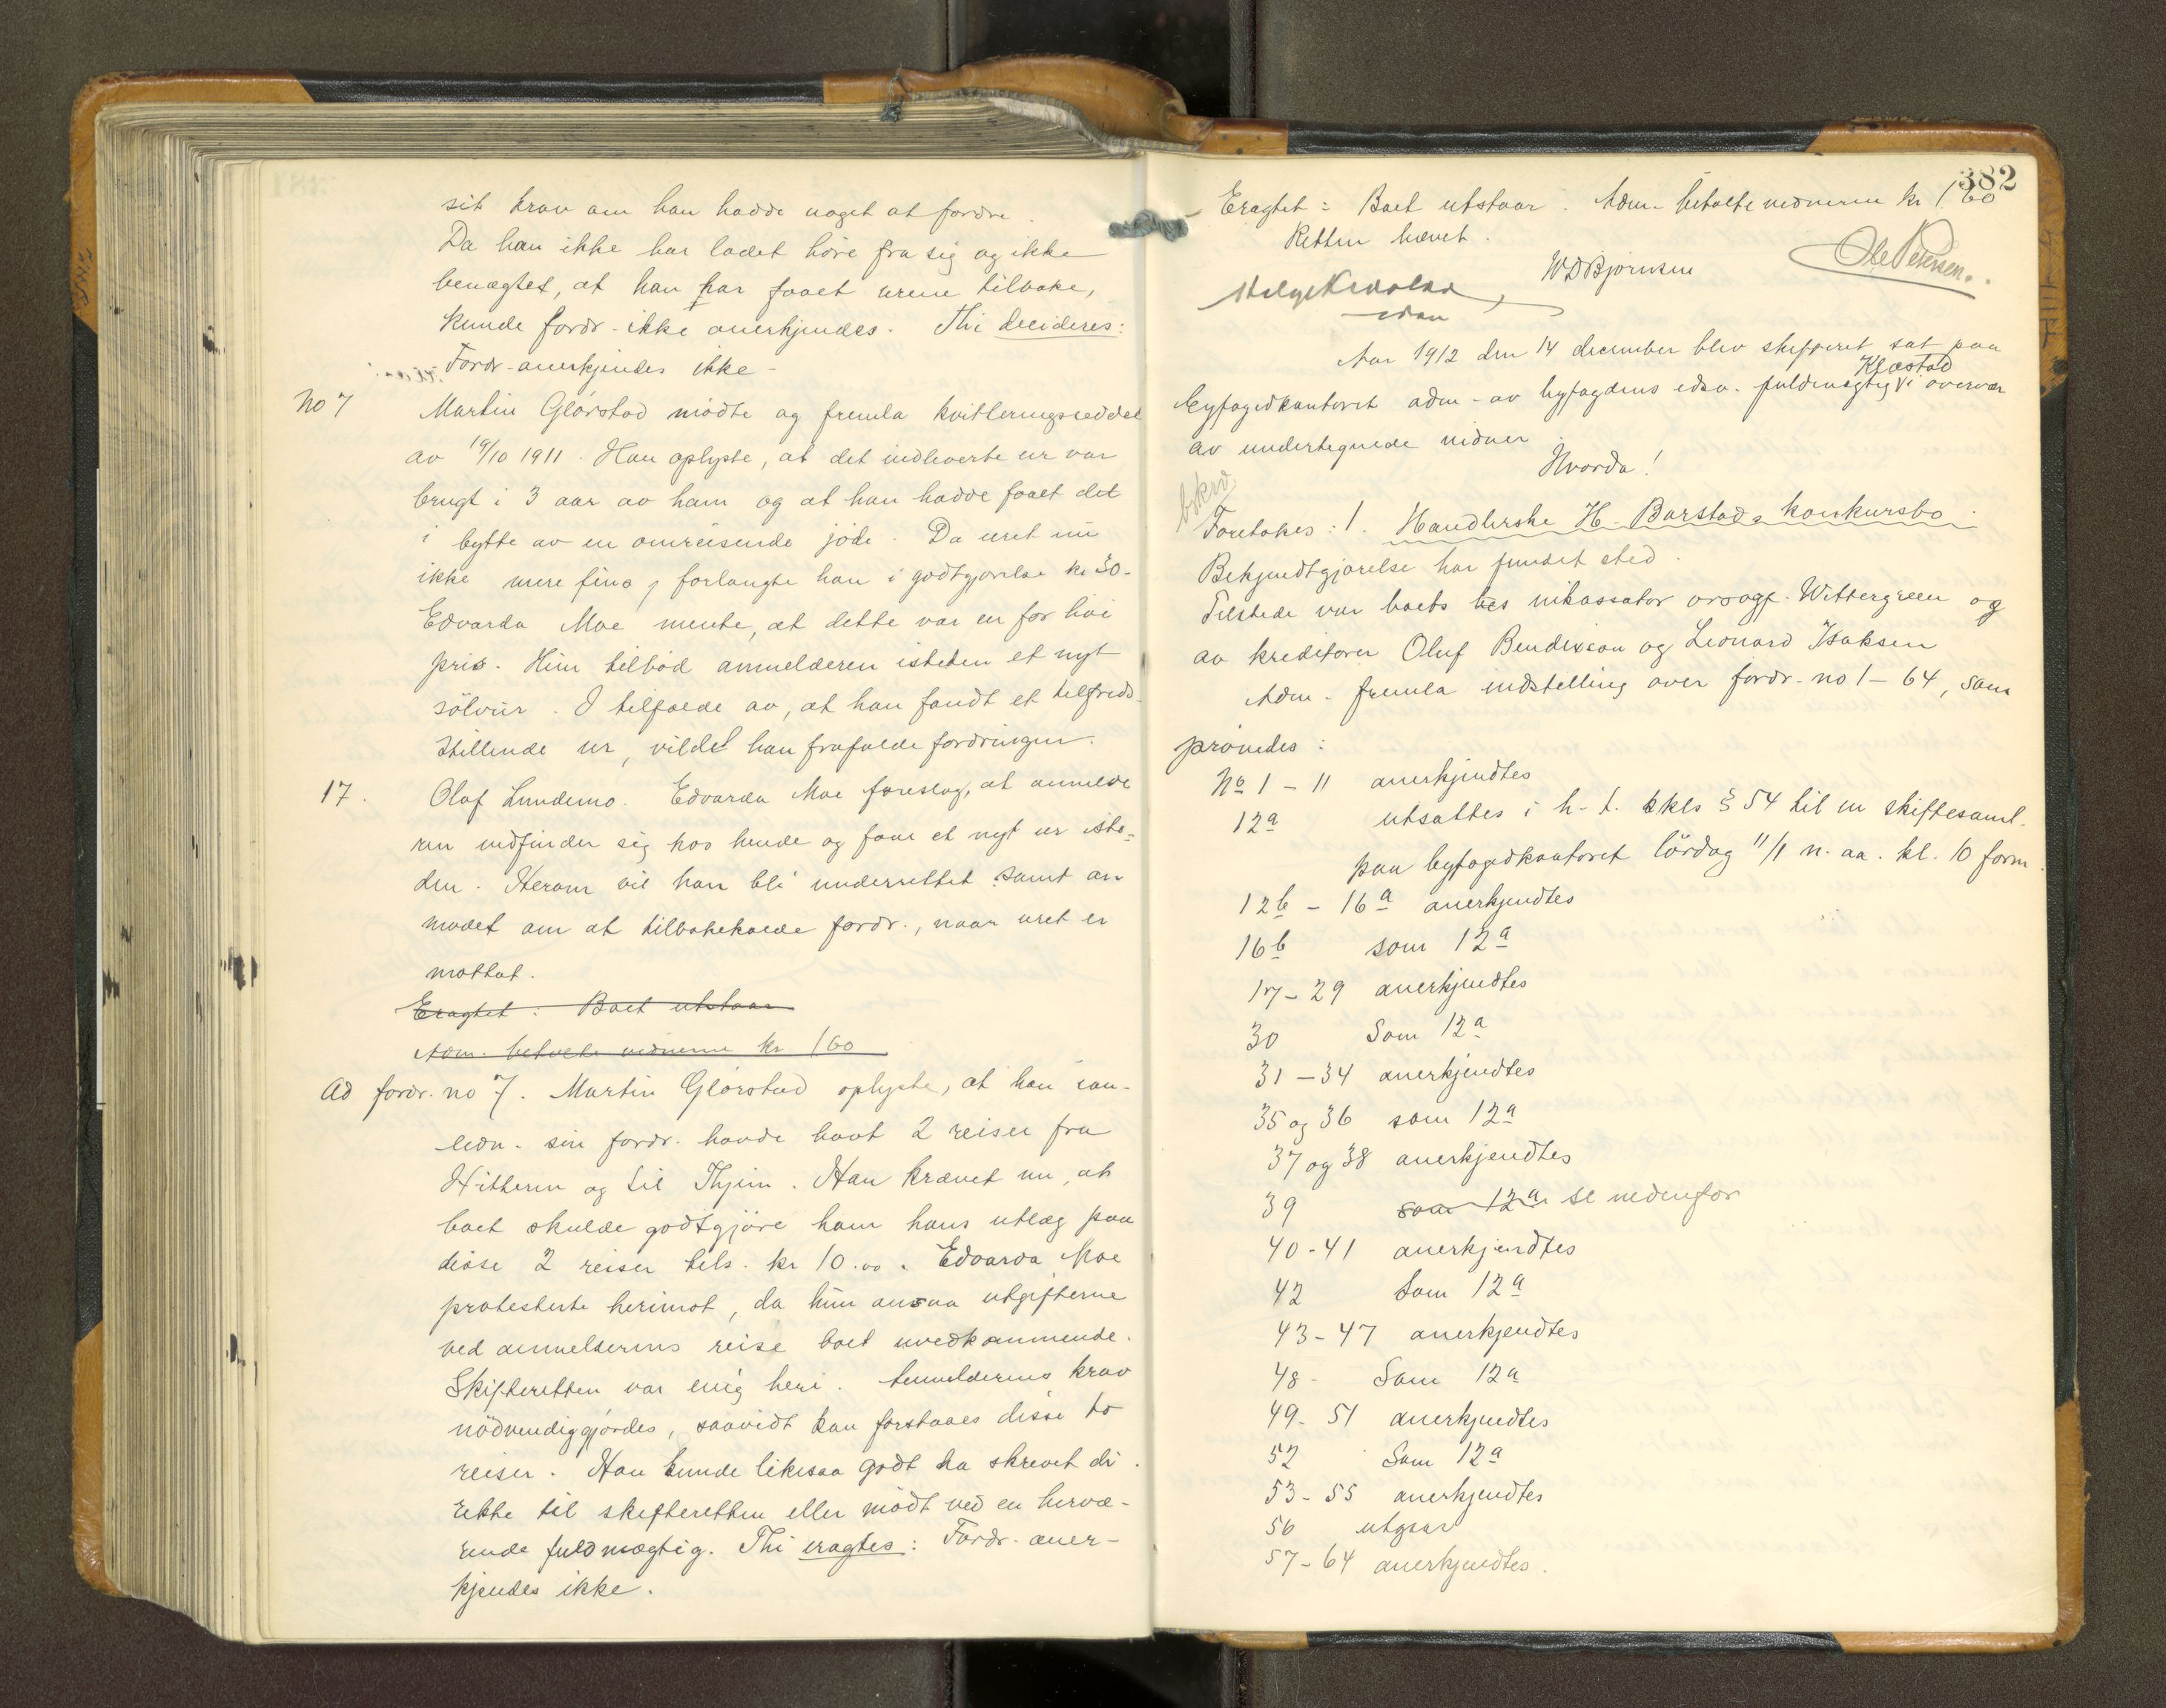 sit krav om han hadde noget at fordre.
Da han ikke har ladet høre fra sig og ikke
benægtet, at han har faaet urene tilbake,
kunde fordr. ikke anerkjendes. Thi decideres:
Fordr. anerkjendes ikke -
No 7 Martin Glørstad mødte og fremla kvitteringsseddel
av 19/10 1911. Han oplyste, at det indleverte ur var
brugt i 3 aar av ham og at han hadde faaet det
i bytte av en omreisende jøde. Da uret nu
ikke mere fins, forlangte han i godtgjørelse kr 30-
Edvarda Moe mente, at dette var en for høi
pris. Hun tilbød anmelderen isteden et nyt
sølvur. I tilfælde av, at han fandt et tilfreds-
stillende ur, vilde han frafalde fordringen.
17. Olaf Lundemo. Edvarda Moe foreslog, at anmelde
ren indfinder sig hos hende og faar et nyt ur iste=
den. Herom vil han bli underrettet samt an
modet om at tilbakekalde fordr., naar uret er
mottat.
Eragtet: Boet utstaar
Adm. betalte vidnerne kr 1 60
Ad fordr. no 7. Martin Glørstad oplyste, at han i an-
ledn. sin fordr. havde havt 2 reiser fra
Hitteren og til Thjem. Han krævet nu, at
boet skulde godtgjøre ham hans utlæg paa
disse 2 reiser tils. kr 10.00. Edvarda Moe
protesterte herimot, da hun ansaa utgifterne
ved anmelderens reise boet uvedkommende.
Skifteretten var enig heri. Anmelderens krav
nødvendiggjordes, saavidt kan forstaaes disse to
reiser. Han kunde likesaa godt ha skrevet di
rekte til skifteretten eller mødt ved en hervæ-
rende fuldmægtig. Thi eragtes: Fordr. aner-
kjendes ikke.
382
Eragtet: Boet utstaar. Adm. betalte vidnerne kr 1.60
Retten hævet.
W D Bjørnsen
Ole Petersen.
Aar 1912 den 14 december blev skifteret sat paa
byfogedkontoret adm. av byfogdens edsv. fuldmægtig Klæstad i overvær
av undertegnede vidner
Hvorda!
Foretokes: 1. Handlerske H. Barstads konkursbo.
Bekjendtgjørelse har fundet sted.
Tilstede var boets inkassator ovsagf. Wittergreen og
av kreditorer Oluf Bendixson og Leonard Isaksen
Adm. fremla indstilling over fordr. no 1 - 64, som
prøvedes:
No 1 - 11 anerkjendtes
12a utsattes i h. t. kkls § 54 til en skiftesaml.
paa byfogedkontoret lördag 11/1 n. aa. kl. 10 form.
12b - 16a anerkjendtes
16b som 12a
17 - 29 anerkjendtes
30 Som 12a
31 - 34 anerkjendtes
35 og 36 som 12a
37 og 38 anerkjendtes
39 som 12a se nedenfor
40 - 41 anerkjendtes
42 Som 12a
43 - 47 anerkjendtes
48 - Som 12a
49 - 51 anerkjendtes
52 Som 12a
53 - 55 anerkjendtes
56 utgaar
57 - 64 anerkjendtes.